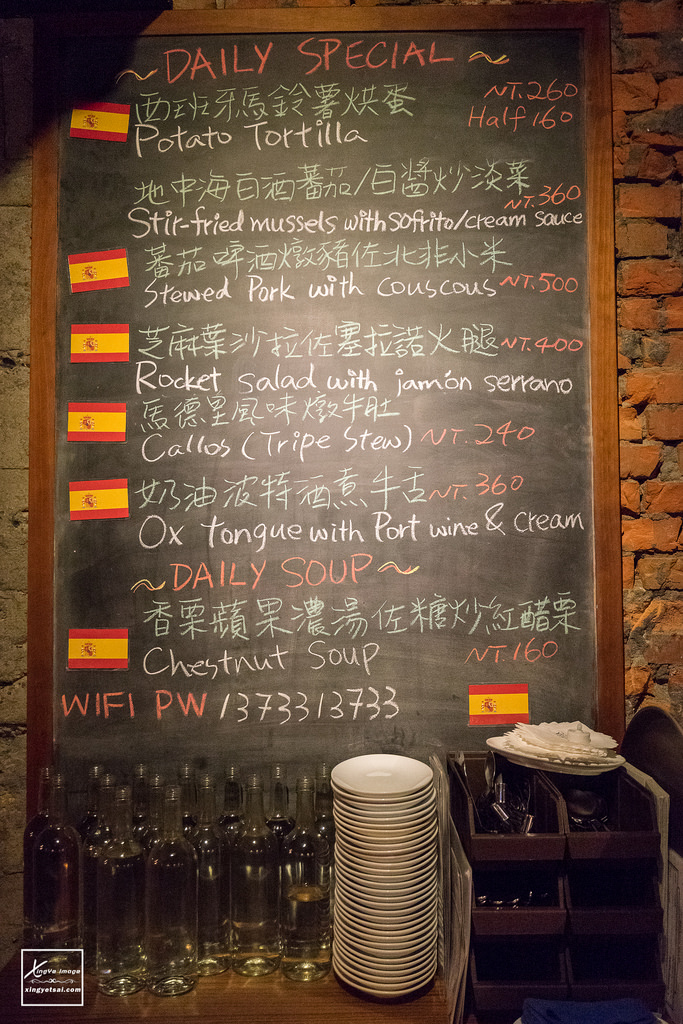 ~ DAILY SPECIAL ~
西班牙馬鈴薯烘蛋 NT.260
Potato Tortilla Half 160
地中海白酒蕃茄/白醬炒淡菜 NT.360
Stir-fried mussels with sofrito/cream sauce
蕃茄啤酒燉豬佐北非小米
Stewed Pork with couscous NT.500
芝麻葉沙拉佐塞拉諾火腿 NT.400
Rocket salad with jamón serrano
馬德里風味燉牛肚
Callos (Tripe Stew) NT.240
奶油波特酒煮牛舌 NT.360
Ox tongue with Port wine & cream
~ DAILY SOUP ~
香栗蘋果濃湯佐糖炒紅醋栗
Chestnut Soup NT.160
WIFI PW 1373313733
XingYe Image
xingyetsai.com